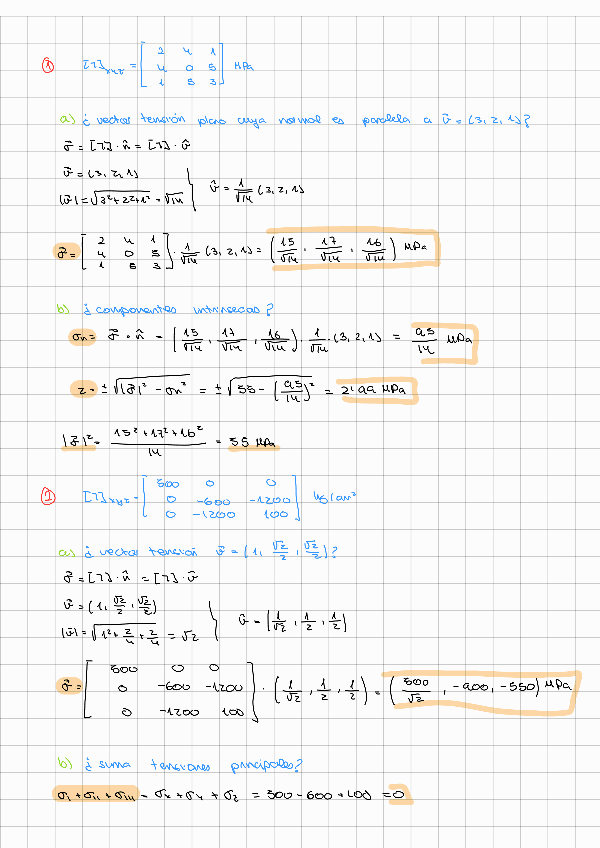 ① [T]xyz = [ 2 4 1 ; 4 0 5 ; 1 5 3 ] MPa
a) ¿ vector tensión plano cuya normal es paralela a v̄ = (3, 2, 1)?
σ̄ = [T] · n̂ = [T] · v̂
v̄ = (3, 2, 1)
|v̄| = √3²+2²+1² = √14 } v̂ = 1/√14 (3, 2, 1)
σ̄ = [ 2 4 1 ; 4 0 5 ; 1 5 3 ] · 1/√14 (3, 2, 1) = ( 15/√14 , 17/√14 , 16/√14 ) MPa
b) ¿ componentes intrínsecas?
σn = σ̄ · n̂ = ( 15/√14 , 17/√14 , 16/√14 ) · 1/√14 · (3, 2, 1) = 95/14 MPa
τ = ± √|σ̄|² - σn² = ± √55 - (95/14)² = 2'99 MPa
|σ̄|² = 15² + 17² + 16² / 14 = 55 MPa
② [T]xyz = [ 500 0 0 ; 0 -600 -1200 ; 0 -1200 100 ] kg/cm²
a) ¿ vector tensión v̄ = (1, √2/2 , √2/2)?
σ̄ = [T] · n̂ = [T] · v̂
v̄ = (1, √2/2 , √2/2)
|v̄| = √1² + 2/4 + 2/4 = √2 } v̂ = ( 1/√2 , 1/2 , 1/2 )
σ̄ = [ 500 0 0 ; 0 -600 -1200 ; 0 -1200 100 ] · ( 1/√2 , 1/2 , 1/2 ) = ( 500/√2 , -900, -550) MPa
b) ¿ suma tensiones principales?
σI + σII + σIII = σx + σy + σz = 500 - 600 + 100 = 0